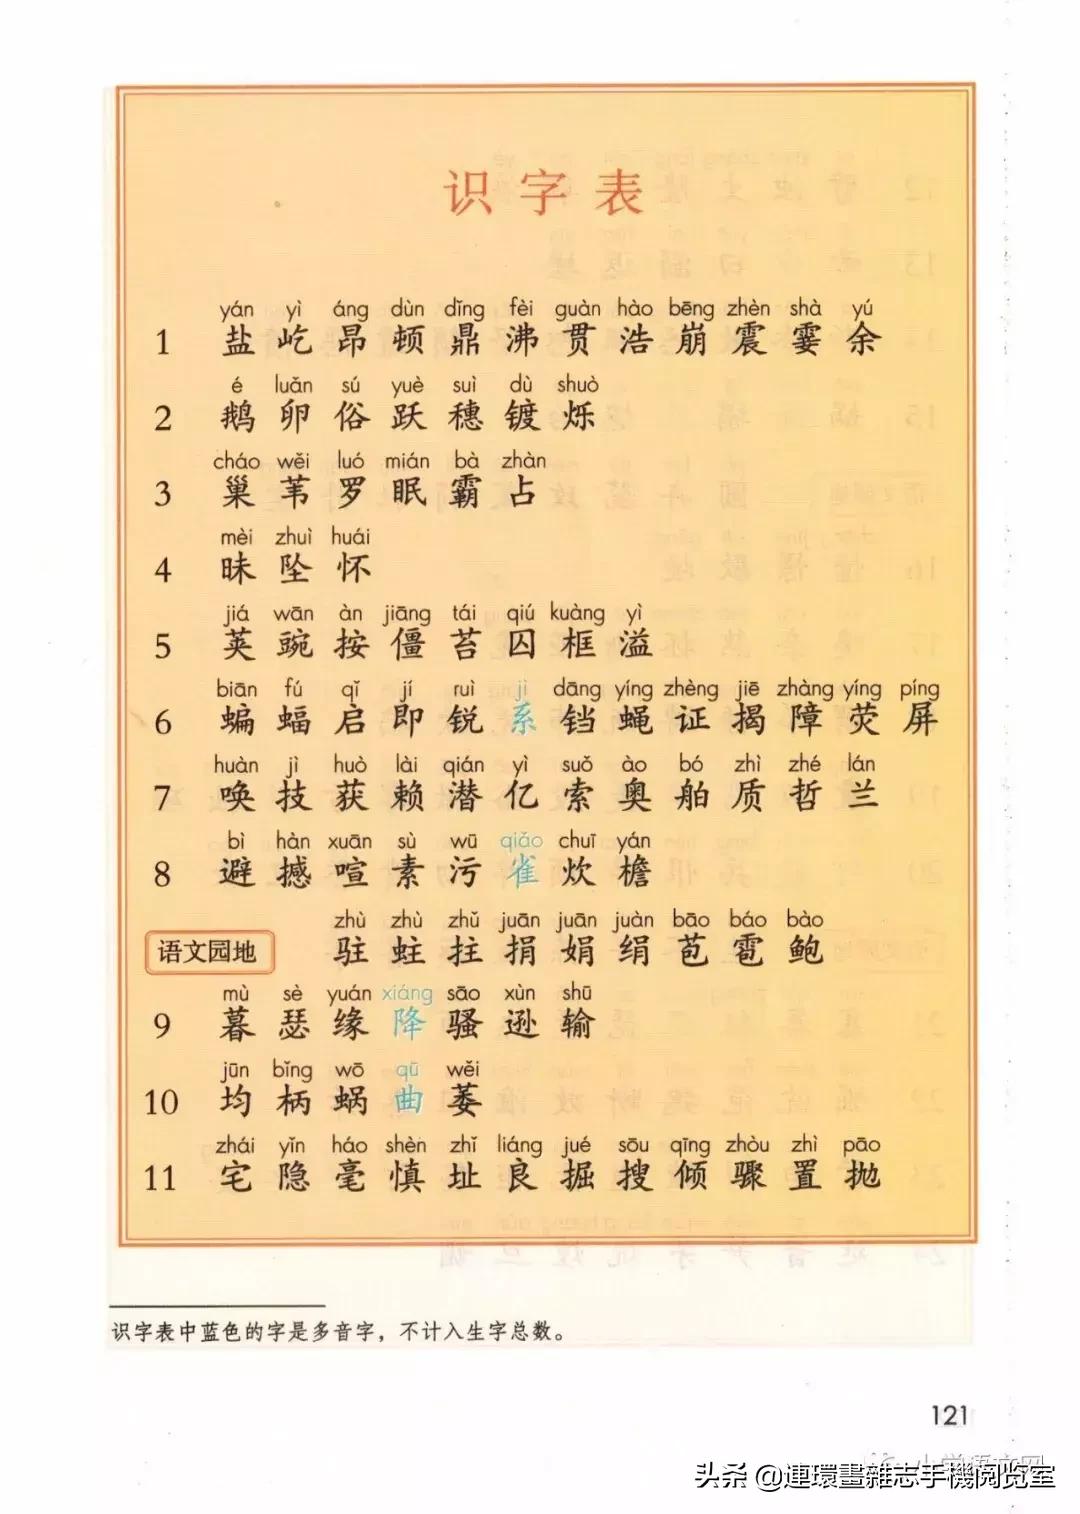 识字表
yán yì áng dùn dǐng fèi guàn hào bēng zhèn shà yú
1 盐 屹 昂 顿 鼎 沸 贯 浩 崩 震 霎 余
é luǎn sú yuè suì dù shuò
2 鹅 卵 俗 跃 穗 镀 烁
cháo wěi luó mián bà zhàn
3 巢 苇 罗 眠 霸 占
mèi zhuì huái
4 昧 坠 怀
jiá wān àn jiāng tái qiú kuàng yì
5 荚 豌 按 僵 苔 囚 框 溢
biān fú qǐ jí ruì jì dāng yíng zhèng jiē zhàng yíng píng
6 蝙 蝠 启 即 锐 系 铛 蝇 证 揭 障 荧 屏
huàn jì huò lài qián yì suǒ ào bó zhì zhé lán
7 唤 技 获 赖 潜 亿 索 奥 舶 质 哲 兰
bì hàn xuān sù wū qiǎo chuī yán
8 避 撼 喧 素 污 雀 炊 檐
zhù zhù zhǔ juān juān juàn bāo báo bào
语文园地 驻 蛀 拄 捐 娟 绢 苞 雹 鲍
mù sè yuán xiáng sāo xùn shū
9 暮 瑟 缘 降 骚 逊 输
jūn bǐng wō qū wěi
10 均 柄 蜗 曲 萎
zhái yǐn háo shèn zhǐ liáng jué sōu qīng zhòu zhì pāo
11 宅 隐 毫 慎 址 良 掘 搜 倾 骤 置 抛
识字表中蓝色的字是多音字，不计入生字总数。
121
小学语文网
头条 @連環畫雜志手機阅览室